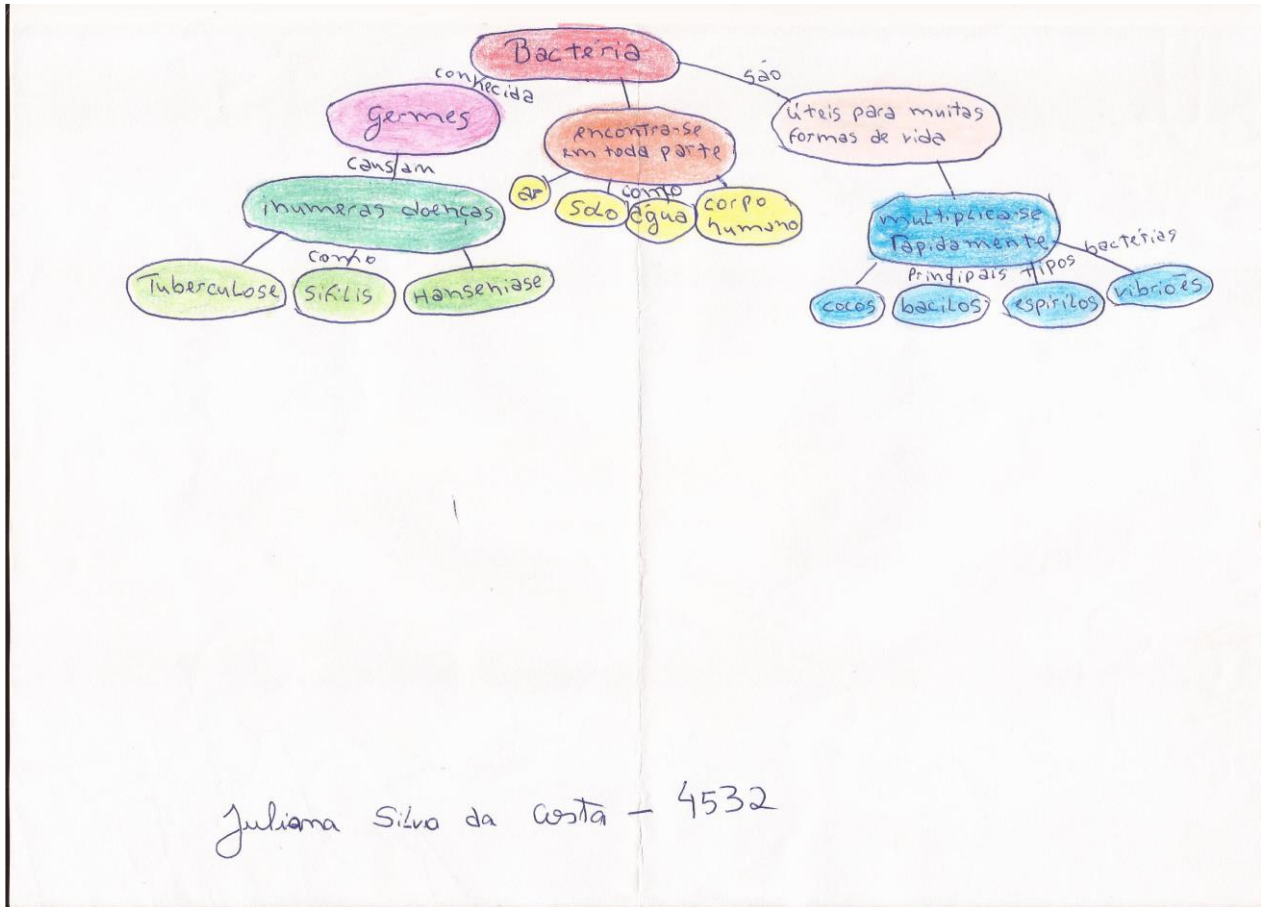 Bactéria
conhecida
são
germes
encontra-se
em toda parte
úteis para muitas
formas de vida
causam
como
inumeras doenças
ar
solo
água
corpo
humano
multiplica-se
rapidamente
como
Principais Tipos bactérias
Tuberculose
Sifilis
Hanseniase
cocos
bacilos
espirilos
vibriões
Juliana Silva da Costa - 4532